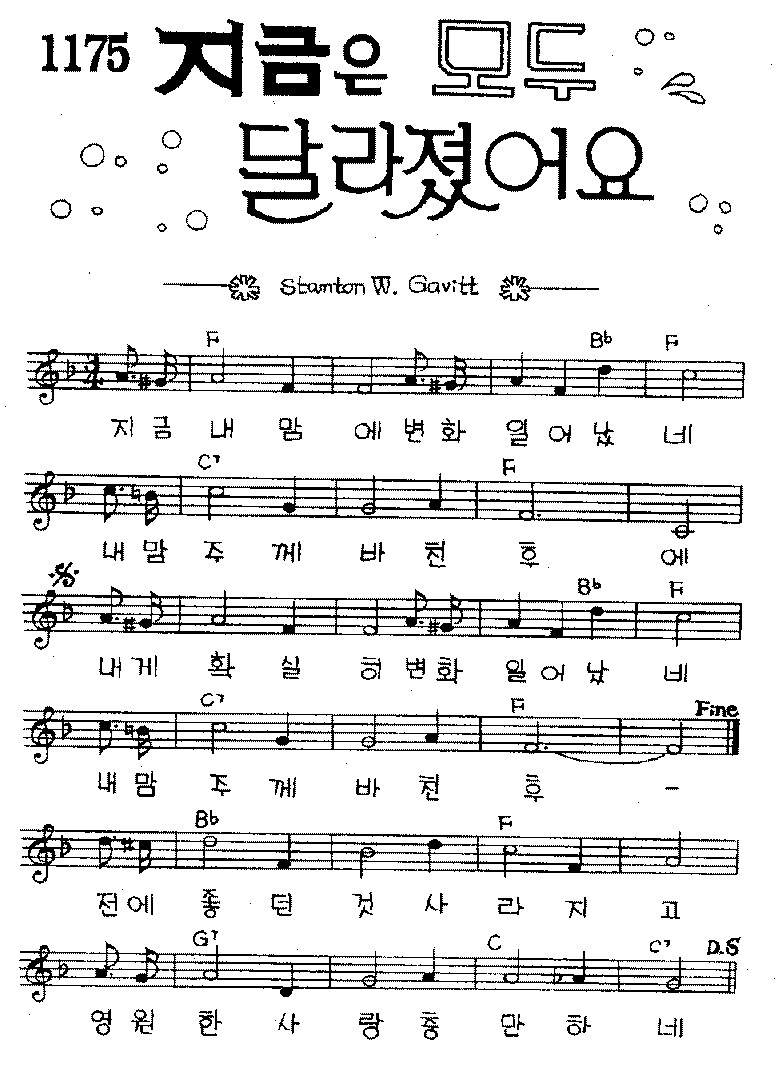 1175 지금은 모두
달라졌어요
Stanton W. Gavitt
F B♭ F
지금 내 맘 에 변화 일어났 네
C7 F
내맘 주 께 바 친 후 에
B♭ F
내게 확 실 히 변화 일어났 네
C7 F Fine
내맘 주 께 바 친 후 -
B♭ F
전에 좋 던 것 사 라 지 고
G7 C C7 D.S
영원 한 사 랑 충 만 하 네